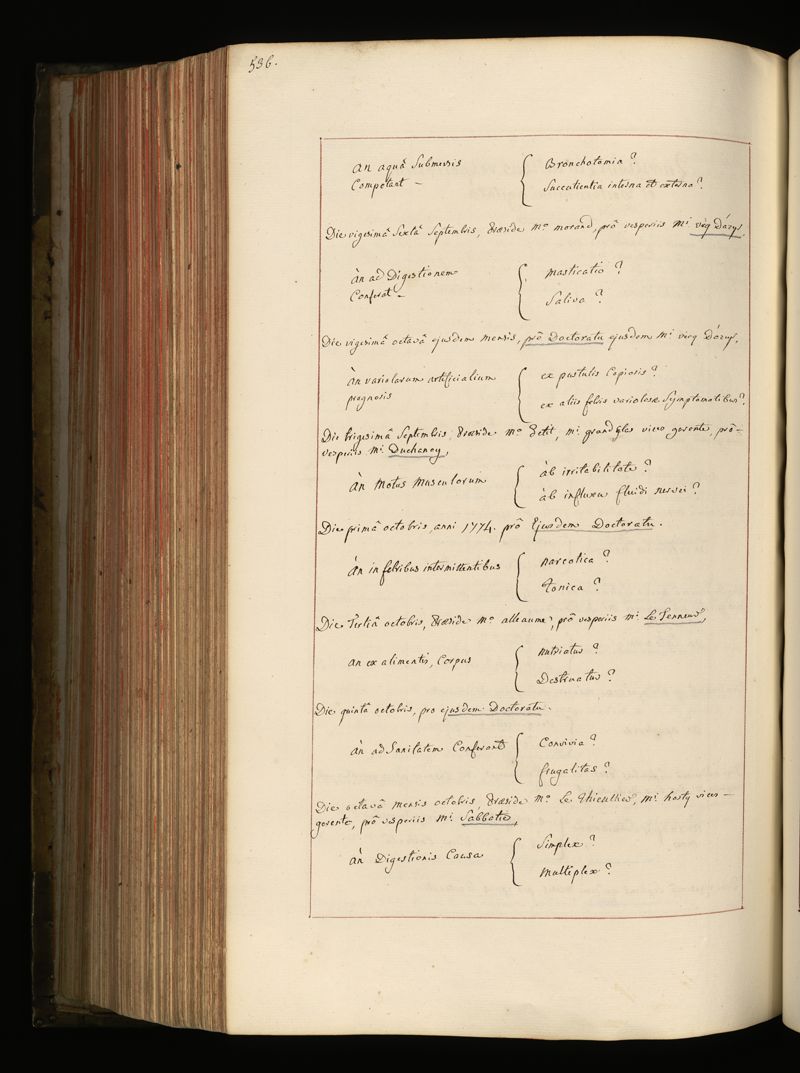 536.
an aquâ Submersis { Bronchotomia ?
Competant – { Succutientia interna et externa ?
Die vigesimâ sextâ Septembris, præside Mo morand, prô vesperiis Mi vicq Dázyr,
àn ad Digestionem { masticatio ?
Conferat – { Saliva ?
Die vigesimâ octavâ ejusdem mensis, prô Doctoratu ejusdem Mi vicq Dázyr.
àn variolarum artificialium { ex pustulis Copiosis ?
prognosis { ex aliis febris variolosæ Symptomatibus ?
Die trigesimâ Septembris, præside Mo Petit, Mi grandclas vices gerente, prô
vesperiis Mi Duchanoy,
àn Motus Musculorum { àb irritabilitate ?
{ àb influxu fluidi nervei ?
Die primâ octobris, anni 1774. prô Ejusdem Doctoratu.
àn in febribus intermittentibus { narcotica ?
{ tonica ?
Die Tertiâ octobris, præside Mo alleaume, prô vesperiis Mi
an ex alimentis, Corpus { nutriatur ?
{ Destruatur ?
Die quintâ octobris, pro ejusdem Doctoratu.
àn ad Sanitatem Conferant { Convivia ?
{ frugalitas ?
Die octavâ mensis octobris, præside Mo Le Thieullier, Mi hosty vices –
gerente, prô vesperiis Mi Sabbatier,
àn Digestionis Causa { Simplex ?
{ Multiplex ?